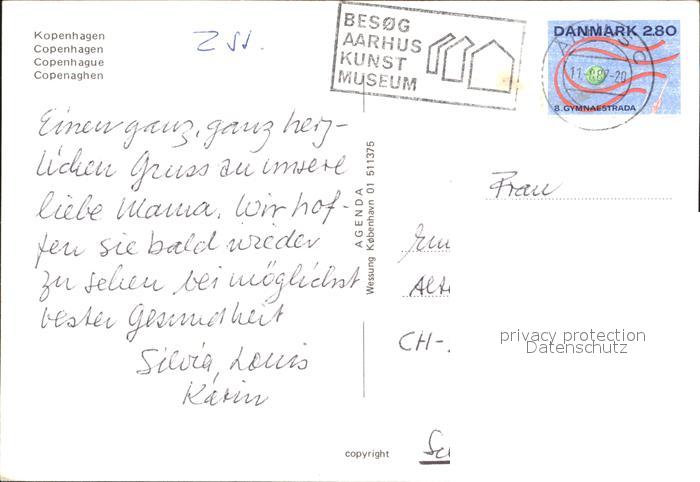 Kopenhagen
Copenhagen
Copenhague
Copenaghen
BESØG
AARHUS
KUNST
MUSEUM
DANMARK 2.80
8.GYMNAESTRADA
Einen ganz, ganz herz-
lichen Gruss an unsere
liebe Mama. Wir hof-
fen sie bald wieder
zu sehen bei möglichst
bester Gesundheit
Silvia, Louis
Karin
AGENDA
Wessung København 01 511375
Frau
CH-
privacy protection
Datenschutz
copyright